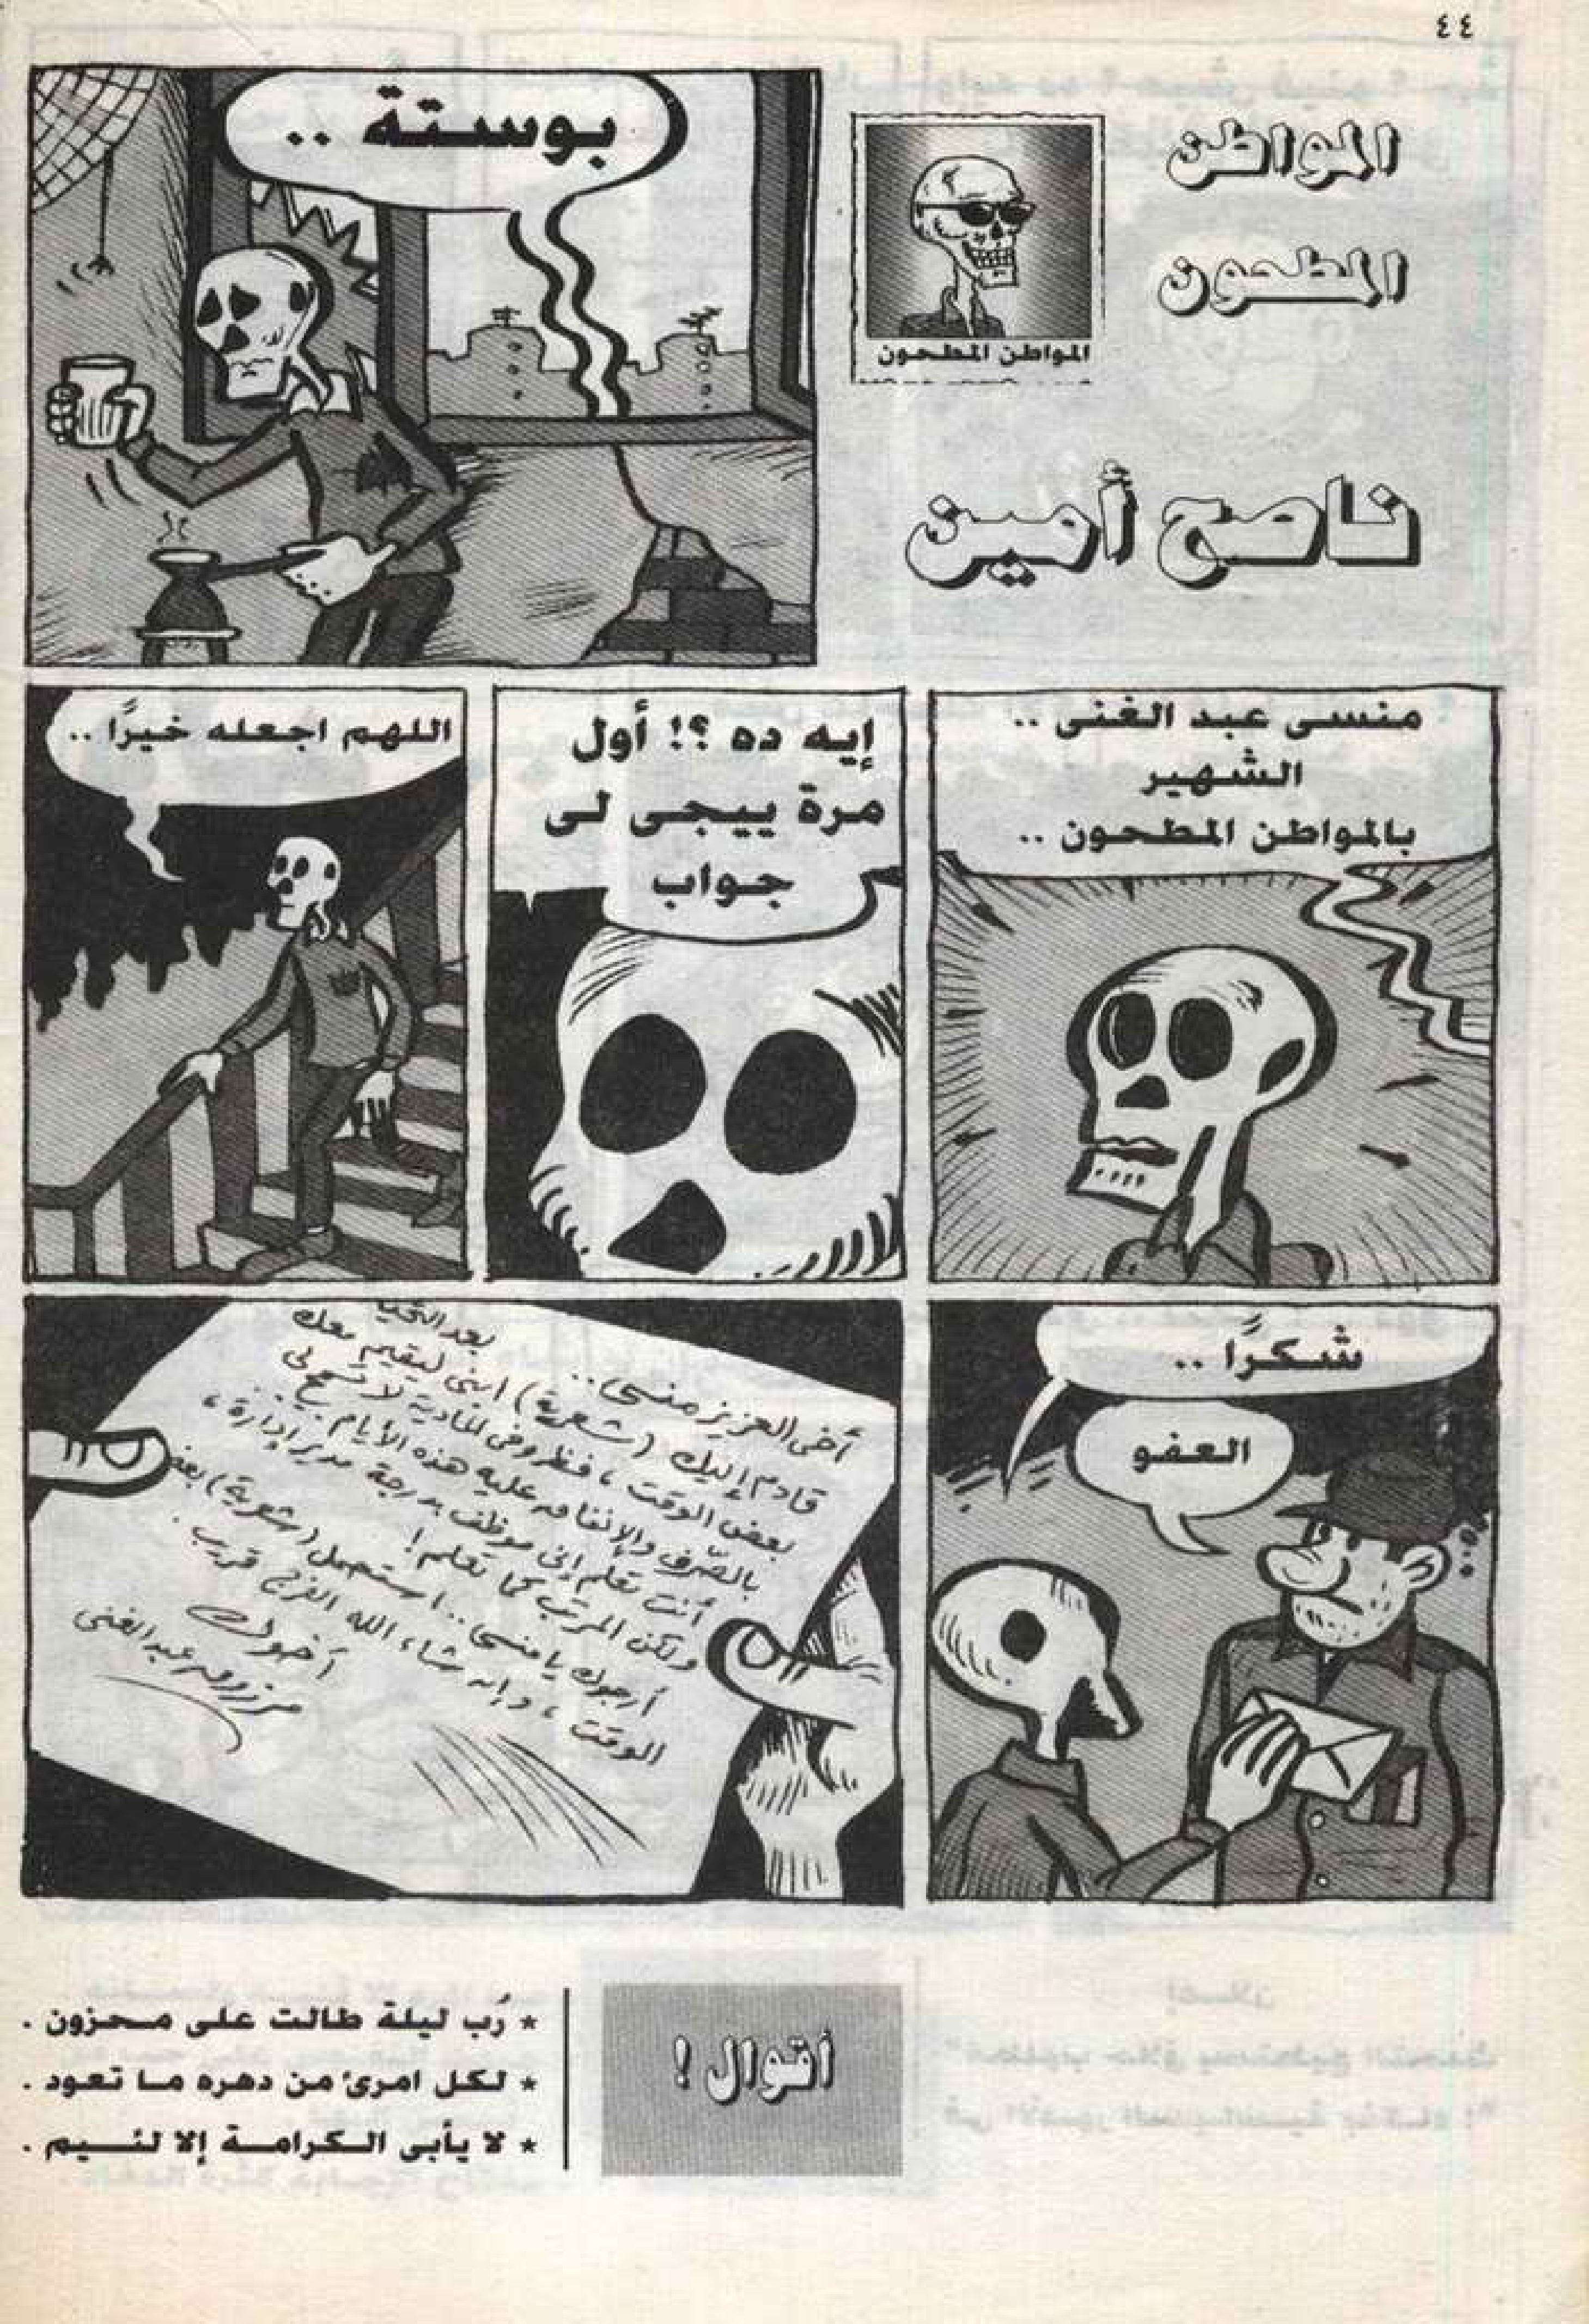 ٤٤
المواطن
المطحون
المواطن المطحون
ناصح أمين
بوستة ..
منسى عبد الغنى ..
الشهير
بالمواطن المطحون ..
إيه ده ؟! أول
مرة ييجى لى
جواب
اللهم اجعله خيرًا ..
شكرًا ..
العفو
بعد التحية
أخى العزيز منسى ..
قادم إليك (شعرية) ابنى ليقيم معك
بعض الوقت ، فظروفى المادية لا تسمح لى
بالصرف والإنفاق عليه هذه الأيام
أنت تعلم إنى موظف بدرجة مدير إدارة ،
ولكن المرتب كما تعلم !
أرجوك يا منسى .. استحمل (شعرية) بعض
الوقت ، وإن شاء الله الفرج قريب .
أخوك
مرزوق عبد الغنى
أقوال !
* رُب ليلة طالت على محزون .
* لكل امرئ من دهره ما تعود .
* لا يأبى الكرامة إلا لئيم .